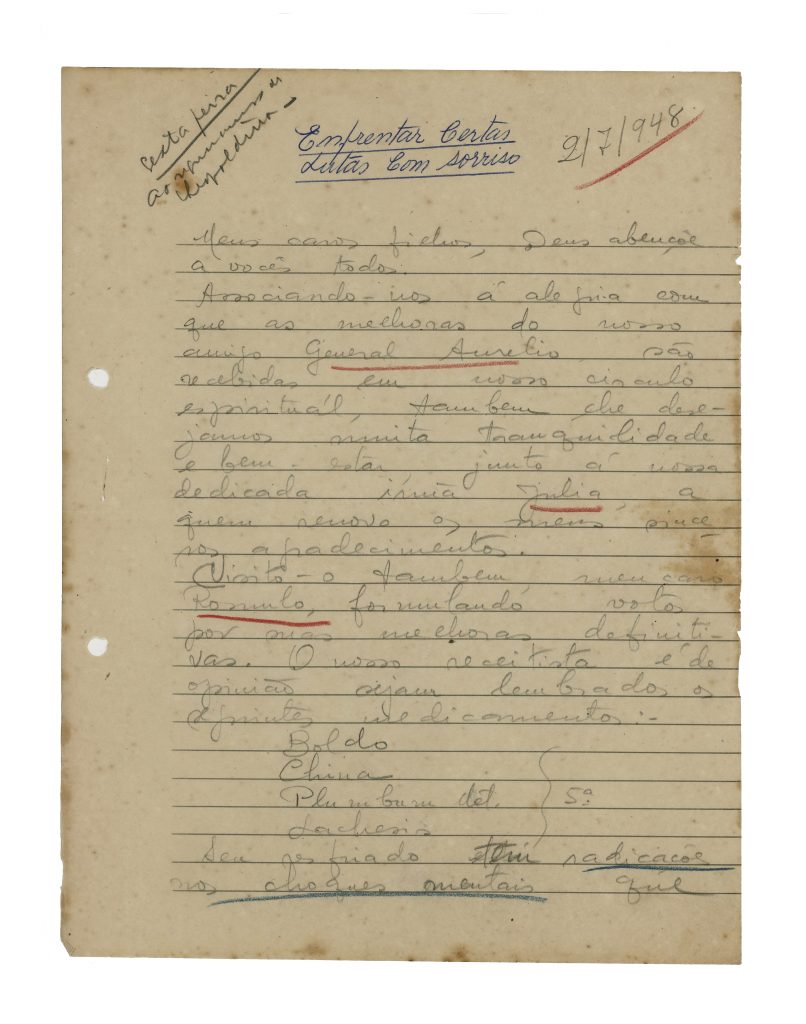 Sexta feira
Leopoldina -
Enfrentar Certas
Lutas Com Sorriso
2/7/948
Meus caros filhos, Deus abençôe
a vocês todos.
Associando-nos á alegria com
que as melhoras do nosso
amigo General Aurelio, são
recebidas em nosso circulo
espirituál, tambem lhe dese-
jamos muita tranquilidade
e bem-estar, junto á nossa
dedicada irmã Julia, a
quem renovo os meus since-
ros agradecimentos.
Visito-o tambem, meu caro
Romulo, formulando votos
por suas melhoras definiti-
vas. O nosso receitista é de
opinião sejam lembrados os
seguintes medicamentos:-
Boldo
China
Plumbum Met. 5ª
Lachesis
Seu resfriado tem radicações
nos choques mentais que